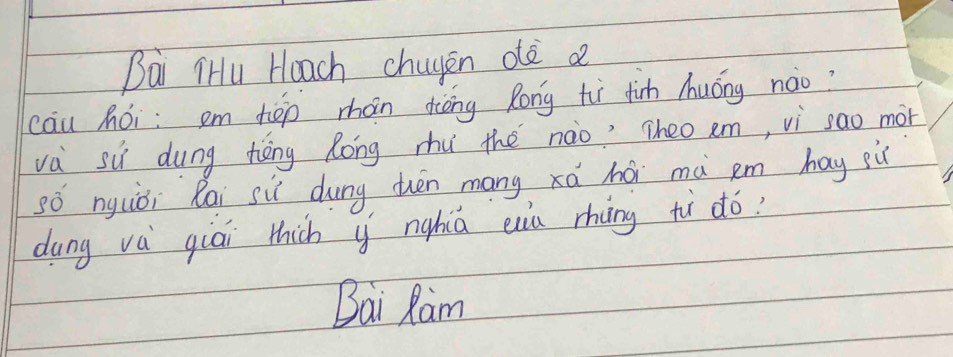 Bài THU Hoạch chuyên đề 2
câu hỏi: em tiếp nhận tiếng lóng từ tình huống nào?
và sử dụng tiếng lóng như thế nào? Theo em, vì sao một
số người lại sử dụng trên mạng xã hội mà em hay sử
dụng và giải thích ý nghĩa của những từ đó?
Bài làm